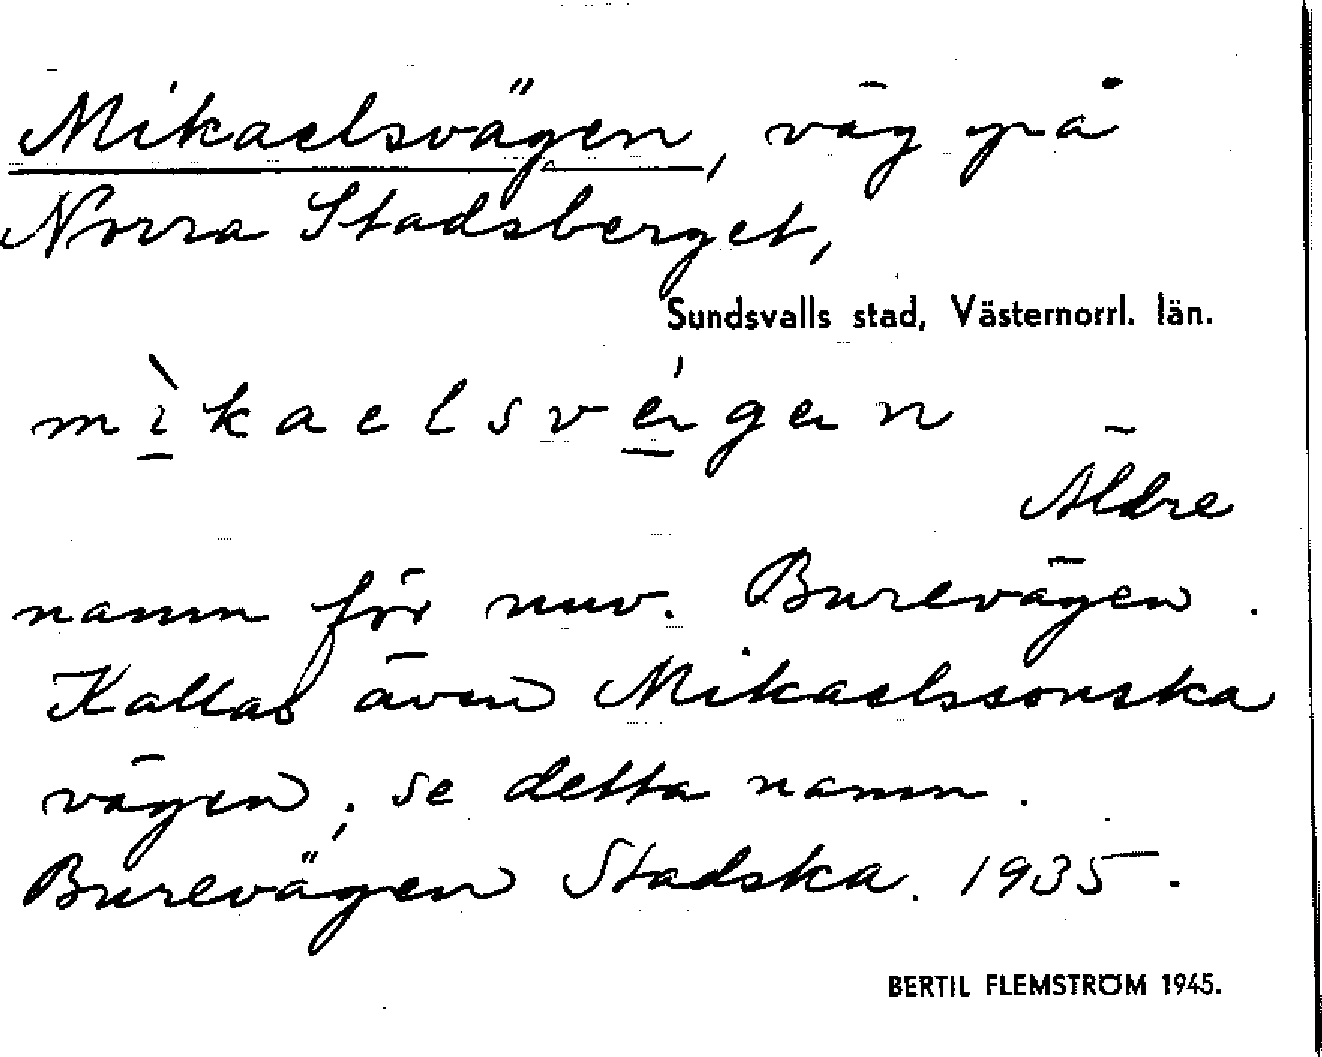 Mikaelsvägen, väg på
Norra Stadsberget,
Sundsvalls stad, Västernorrl. län.
mìkaelsvégen
Äldre
namn för nuv. Burevägen.
Kallas även Mikaelssonska
vägen; se detta namn.
Burevägen Stadska. 1935.
BERTIL FLEMSTRÖM 1945.